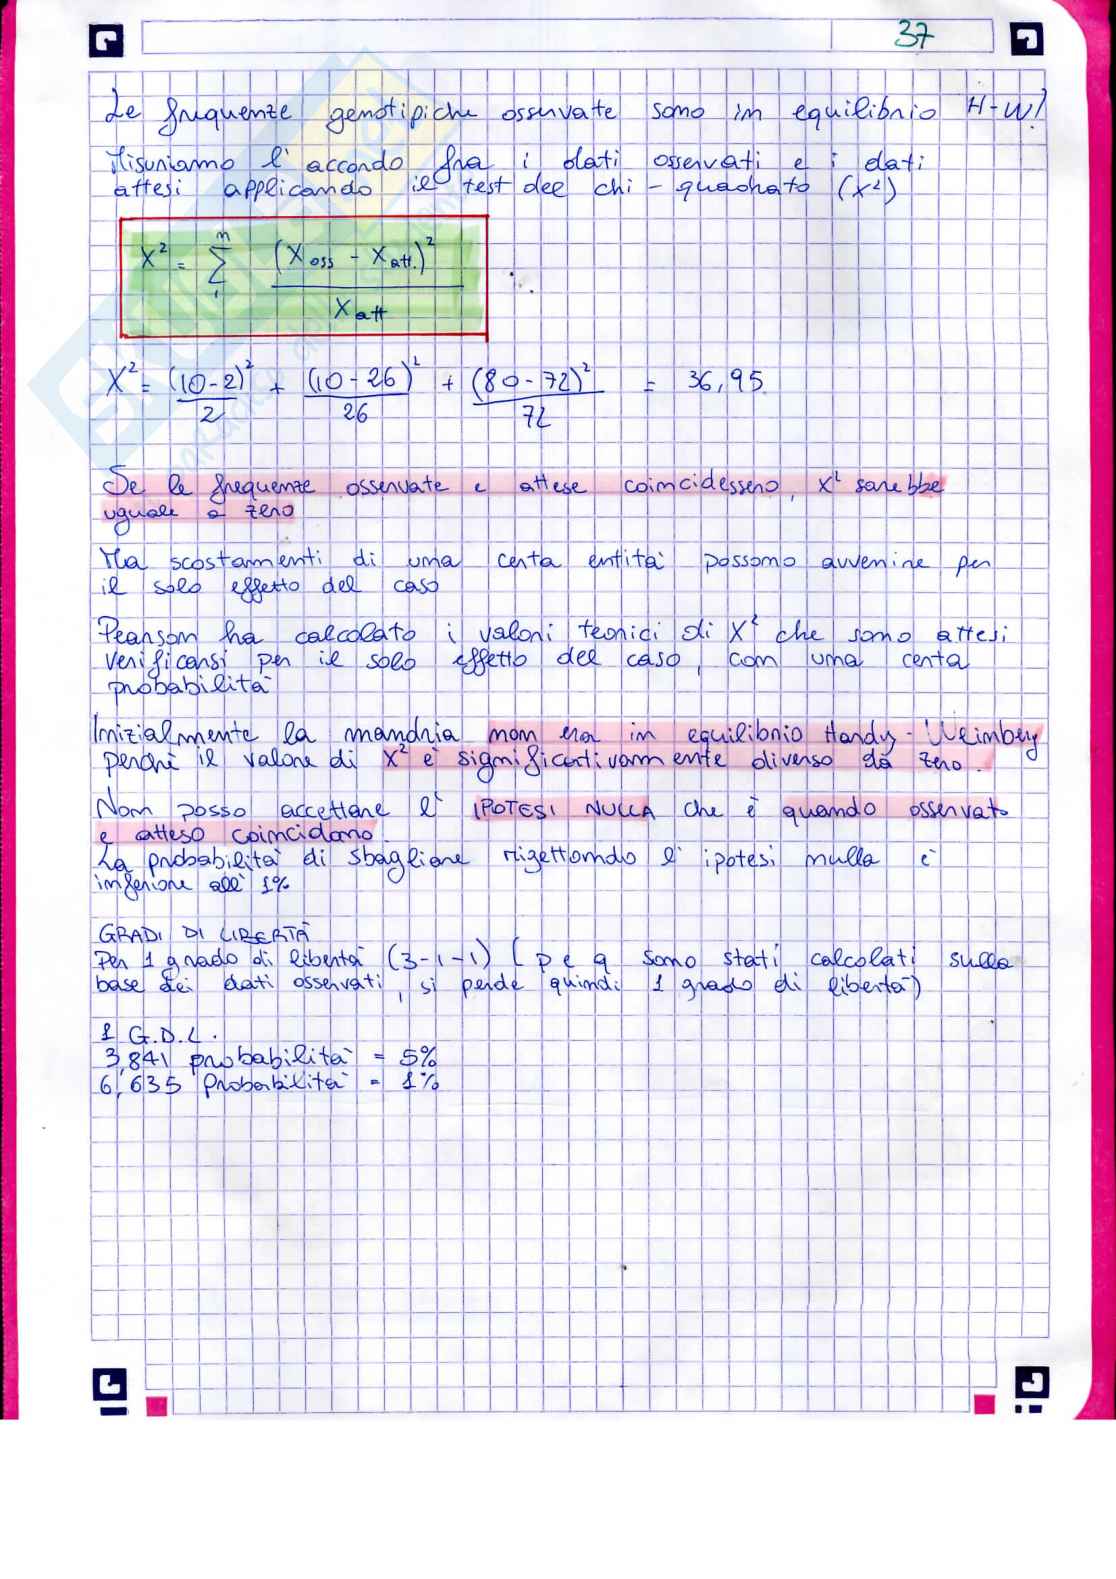 37
Le frequenze genotipiche osservate sono in equilibrio H-W?
Misuriamo l'accordo fra i dati osservati e i dati
attesi applicando il test del chi-quadrato (X²)
X² = Σ (X oss - X att.)² / X att
X² = (10-2)²/2 + (10-26)²/26 + (80-72)²/72 = 36,95
Se le frequenze osservate e attese coincidessero, X² sarebbe
uguale a zero
Ma scostamenti di una certa entità possono avvenire per
il solo effetto del caso
Pearson ha calcolato i valori teorici di X² che sono attesi
verificarsi per il solo effetto del caso, con una certa
probabilità
Inizialmente la mandria non era in equilibrio Hardy-Weimberg
perché il valore di X² è significativamente diverso da zero.
Non posso accettare l'IPOTESI NULLA che è quando osservato
e atteso coincidono.
La probabilità di sbagliare rigettando l'ipotesi nulla è
inferiore all'1%
GRADI DI LIBERTÀ
Per 1 grado di libertà (3-1-1) (p e q sono stati calcolati sulla
base dei dati osservati, si perde quindi 1 grado di libertà)
1 G.D.L.
3,841 probabilità = 5%
6,635 Probabilità = 1%